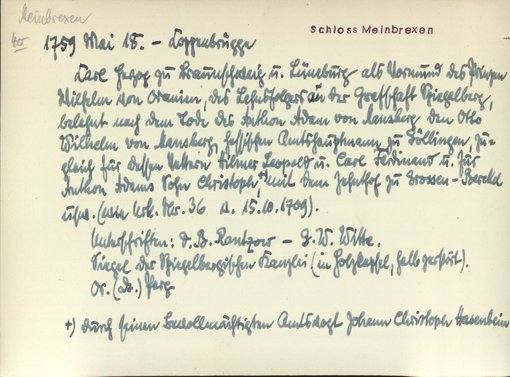 Meinbrexen
Schloss Meinbrexen
40 1759 Mai 18. – Coppenbrügge
Carl Herzog zu Braunschweig u. Lüneburg als Vormund des Prinzen
Wilhelm von Oranien, des Lehnsfolgers in der Grafschaft Spiegelberg,
belehnt nach dem Tode des Anthon Adam von Mansberg den Otto
Wilhelm von Mansberg, hessischen Amtshauptmann zu Göllingen, zu-
gleich für dessen Vettern Hilmer Leopold u. Carl Ferdinand u. für
Anthon Adams Sohn Christoph +) mit dem Zehnthof zu Grossen-Berckel
usw. (wie Urk. Nr. 36 v. 15.10.1709).
Unterschriften: v. B. Rantzow – G. W. Witte.
Siegel der Spiegelbergischen Kanzlei (in Holzkapsel, halb zerstört).
Or. (dt.) Perg
+) durch seinen Bevollmächtigten Amtsvogt Johann Christoph Hasenbein